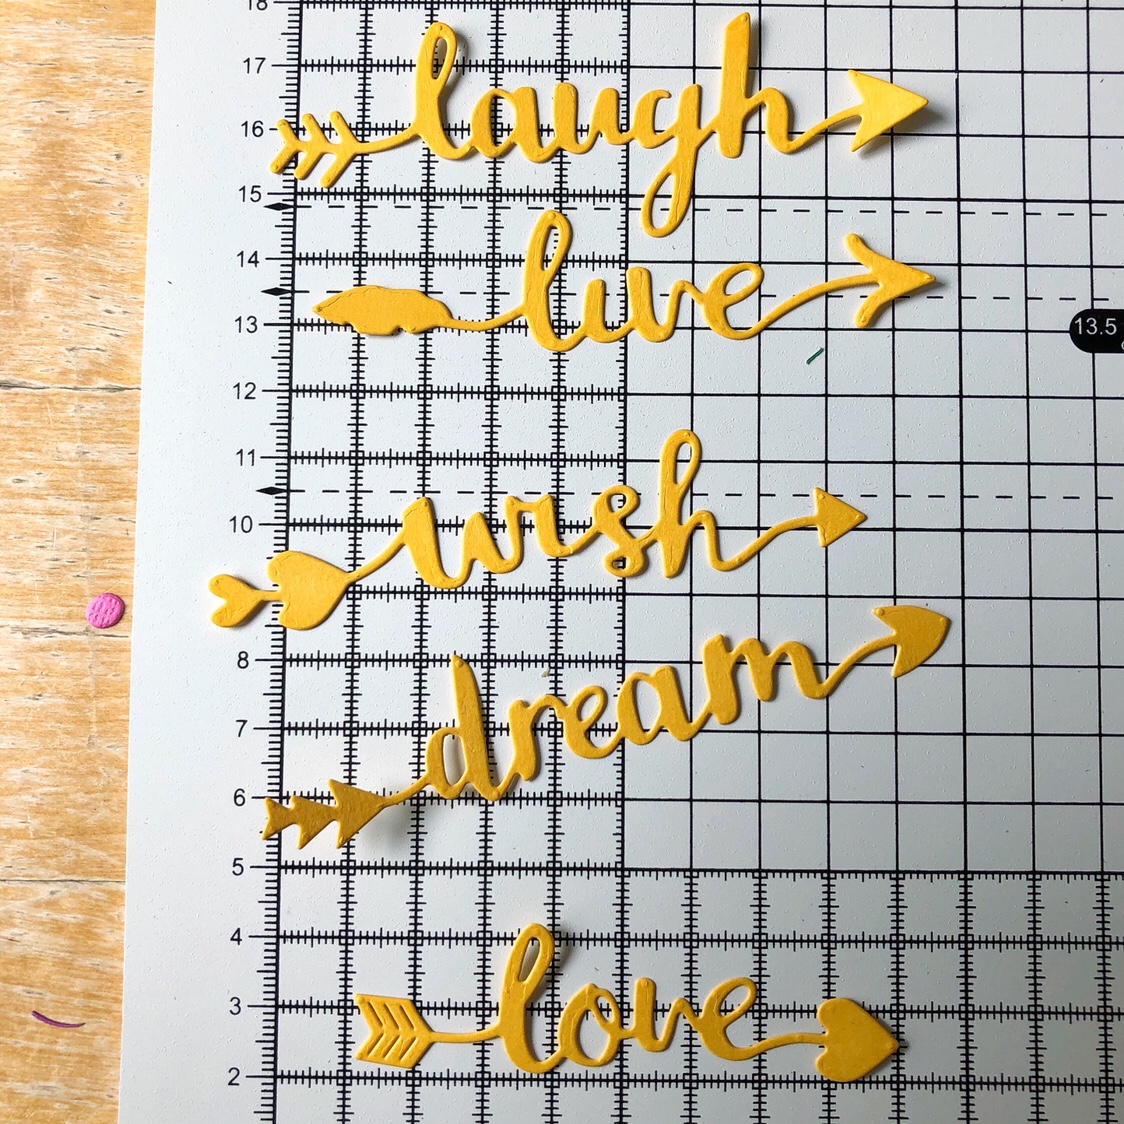 18
17
laugh
16
15
14
live
13
13.5
12
11
wish
10
8
dream
7
6
5
4
love
3
2